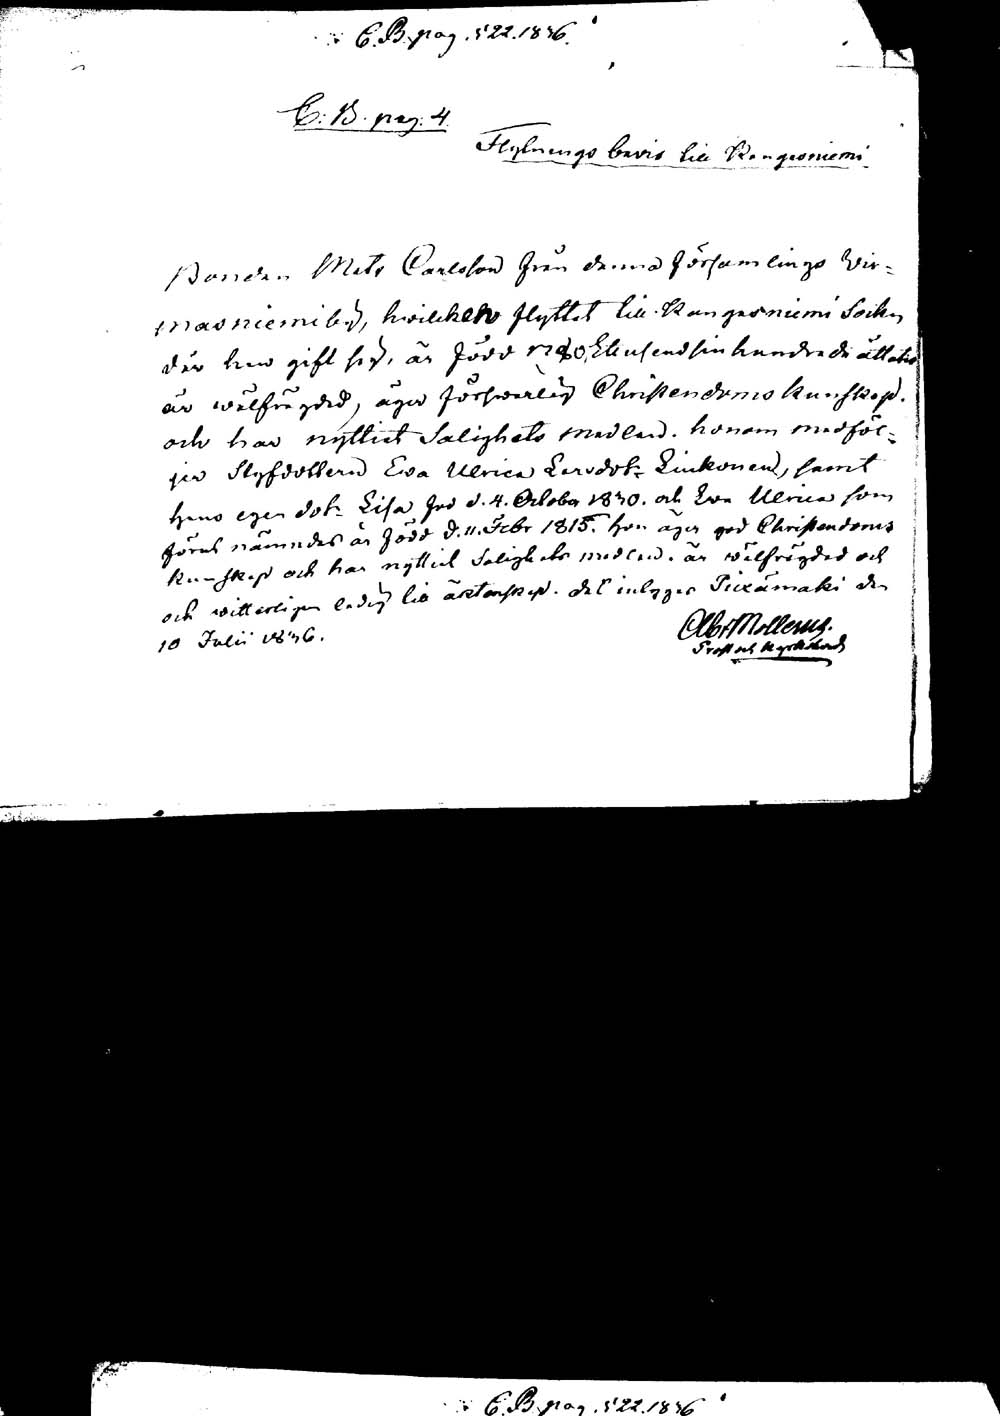 C. B. pag. 522. 1836.
C. B. pag. 4.
Flyttnings bevis till Kangasniemi
Bonden Mats Carlsson från denna församlings Vir=
masniemi by, hvilken flyttat till Kangasniemi Socken
der han gift sig, är född 1780, Ettusendsjuhundrade åttatio
är wälfrägdad, äger försvarlig Christendoms kunskap.
och har nyttiat Salighets medlen. honom medföl=
jer Styfdottern Eva Ulrica Larsdotr Liukonen, samt
hans egen dotr Lisa född d. 4. October 1830. och Eva Ulrica som
förut nämndes är född d. 11. Febr 1815. hon äger god Christendoms
kunskap och har nyttiat Salighets medlen. är wälfrägdad och
och witterligen ledig till äktenskap. det intygar Piexämäki den
10 Julii 1836.
Prost och Kyrkoherde
C. B. pag. 522. 1836